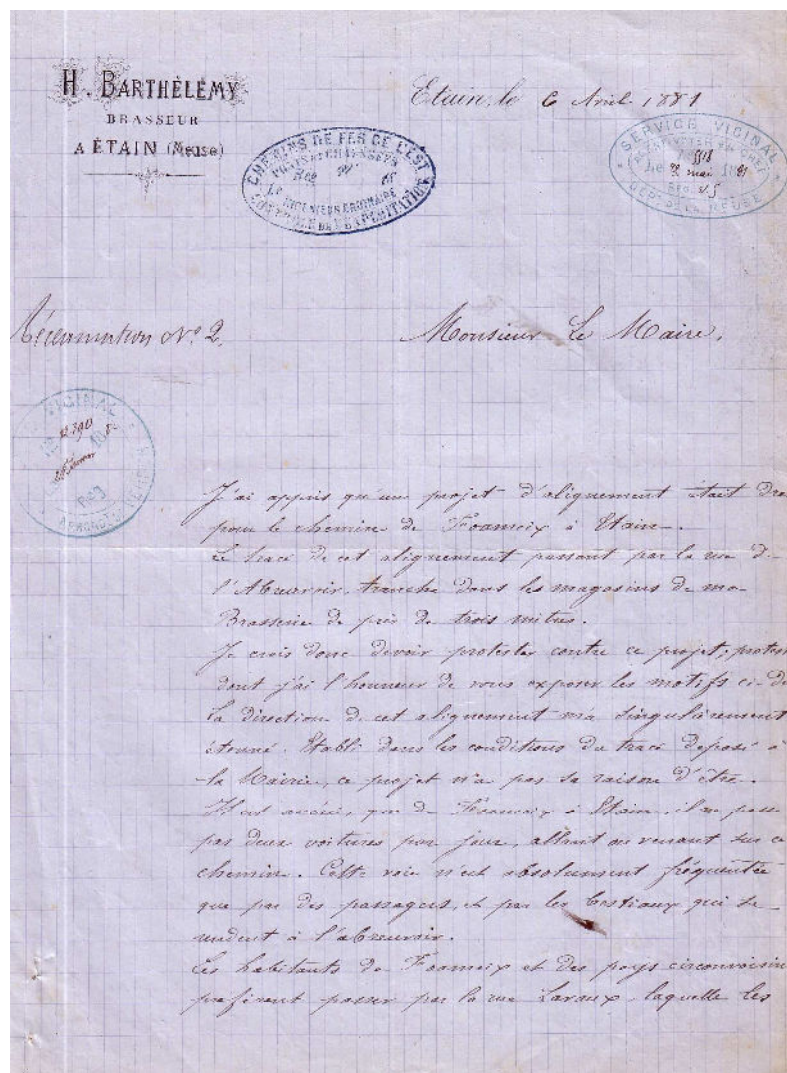 H. BARTHÈLÉMY
BRASSEUR
A ÉTAIN (Meuse)
Etain, le 6 Avril 1881
CHEMINS DE FER DE L'EST
PONTS ET CHAUSSÉES
L'INGÉNIEUR ORDINAIRE
CONTROLE DE L'EXPLOITATION
SERVICE VICINAL
Le 2 mai 1881
DÉPT DE LA MEUSE
Réclamation No 2.
Monsieur Le Maire,
VICINAL
J'ai appris qu'un projet d'alignement était
pour le chemin de Foameix à Etain.
Le tracé de cet alignement passant par la rue de
l'Abreuvoir, tranche dans les magasins de ma
Brasserie de près de trois mètres.
Je crois donc devoir protester contre ce projet; protes
dont j'ai l'honneur de vous exposer les motifs ci-de
La direction de cet alignement m'a singulièrement
étonné. Etabli dans les conditions du tracé déposé à
la Mairie, ce projet n'a pas sa raison d'être.
Il est avéré, que de Foameix à Etain, il ne passe
pas deux voitures par jour, allant ou venant sur ce
chemin. Cette voie n'est absolument fréquentée
que par des passagers, et par les bestiaux qui se
rendent à l'abreuvoir.
Les habitants de Foameix et des pays circonvoisins
préfèrent passer par la rue Lavaux, laquelle les